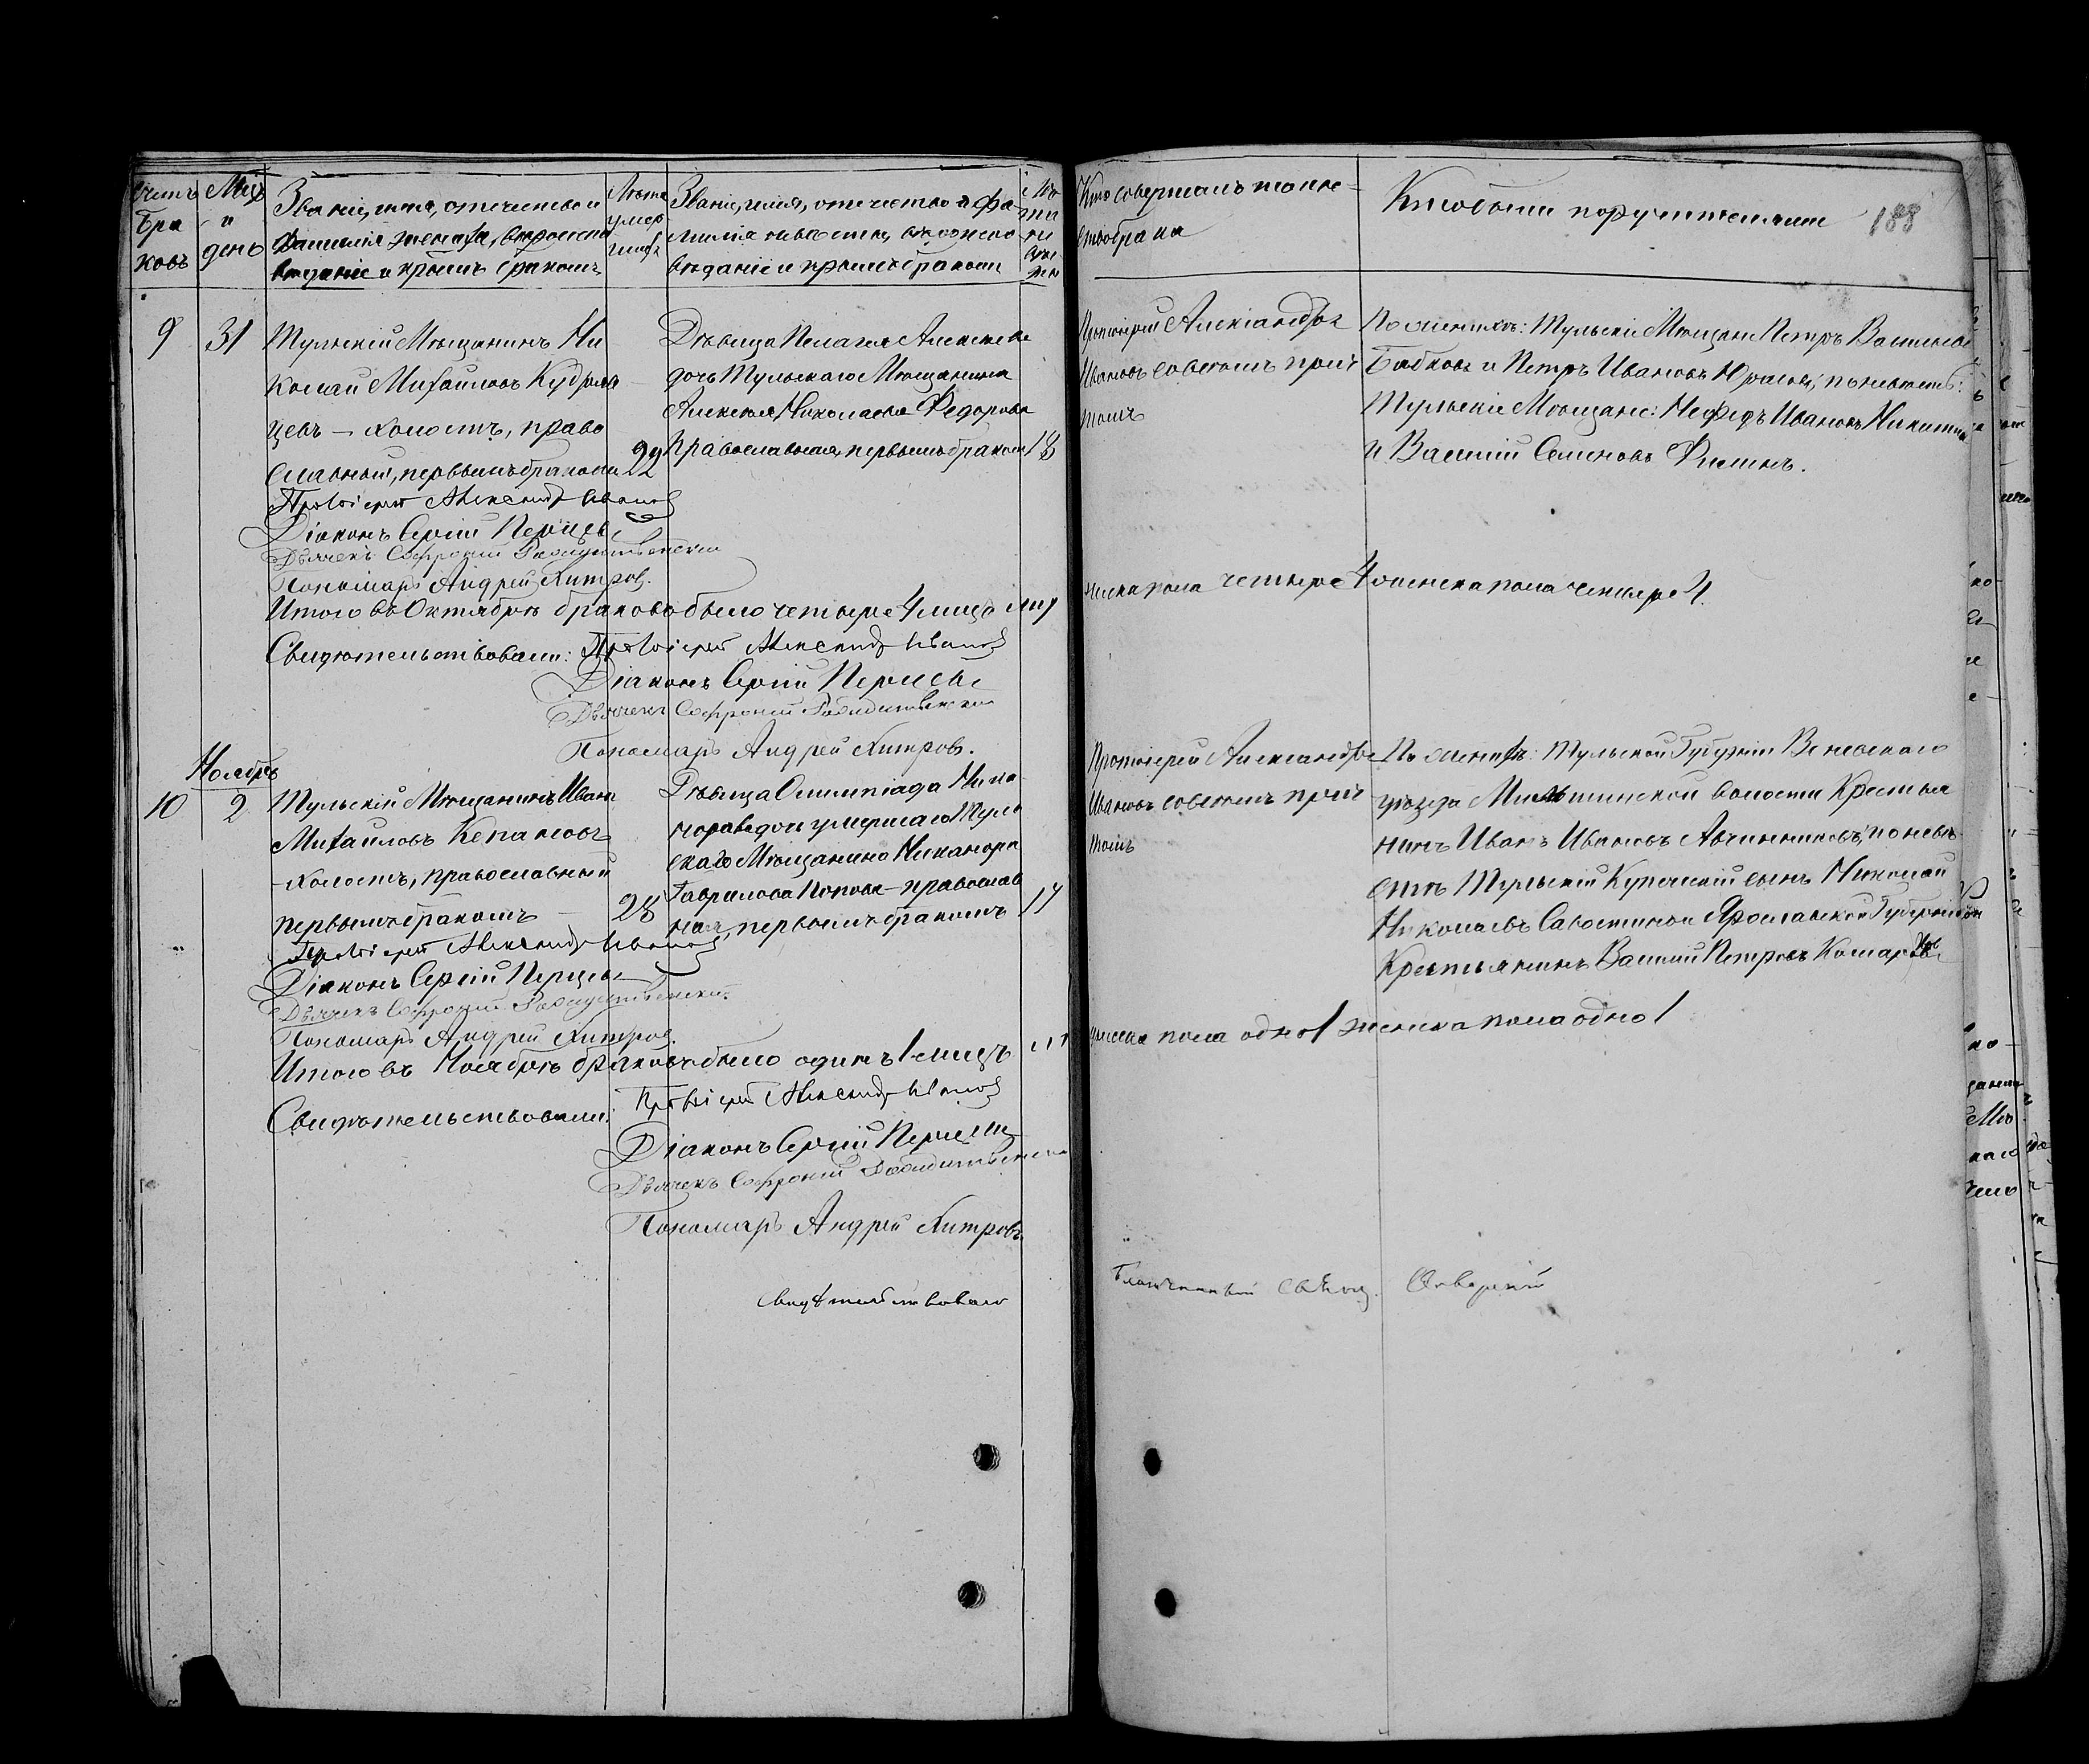 Счетъ Бра ковъ
Мцъ и день
Званіе, имя, отечество и
фамилія жениха, вѣроиспо
вѣданіе и коимъ бракомъ
Лѣта
Званіе, имя, отечество и фа
милія невѣсты, вѣроиспо
вѣданіе и коимъ бракомъ
Кто совершалъ таин
ство брака
Кто были поручителями
188
9
31
Тульскій Мѣщанинъ Ни
колай Михайловъ Кудряв
цевъ – холостъ, право
славный, первымъ бракомъ
22
Дѣвица Пелагея Алексеева
дочь Тульскаго Мѣщанина
Алексея Николаева Федорова
православная, первымъ бракомъ
18
Протоіерей Александръ
Ивановъ совсемъ прич
томъ
По женихѣ: Тульскіе Мѣщане Петръ Васильевъ
Бабковъ и Петръ Ивановъ Юрасовъ; по невѣсте:
Тульскіе Мѣщане: Нефедъ Ивановъ Никитинъ
и Василій Семеновъ Филинъ.
Протоіерей Александр Иванов
Діаконъ Сергій Перцевъ
Дьячекъ Софроній Рождественскій
Пономарь Андрей Хитров.
Итого въ Октябрѣ браковъ было четыре 4 лицъ муж
ческа пола четыре 4 женска пола четыре 4.
Свидѣтельствовали: Протоіерей Александр Иванов
Діаконъ Сергій Перцевъ
Дьячекъ Софроній Рождественскій
Пономарь Андрей Хитров.
Ноябрь
10
2
Тульскій Мѣщанинъ Иванъ
Михайловъ
– холостъ, православный
первымъ бракомъ –
28
Дѣвица Олимпіада Ника
норова дочь умершаго Туль
скаго Мѣщанина Никанора
Гаврилова Попова – православ
ная, первымъ бракомъ
17
Протоіерей Александръ
Ивановъ совсемъ прич
томъ
По женихѣ: Тульской Губерніи Веневскаго
уѣзда волости Крестья
нинъ Иванъ Ивановъ Авчинниковъ; по невѣ
стѣ Тульскій Купеческій сынъ Николай
Николаевъ Савостинъ и Ярославской Губерніи
Крестьянинъ Василій Петровъ Комаровъ
Протоіерей Александр Иванов
Діаконъ Сергій Перцевъ
Дьячекъ Софроній Рождественскій
Пономарь Андрей Хитров.
Итого въ Ноябрѣ браковъ было одинъ 1 лицъ
пола одно 1 женска пола одно 1
Свидѣтельствовали: Протоіерей Александр Иванов
Діаконъ Сергій Перцевъ
Дьячекъ Софроній Рождественскій
Пономарь Андрей Хитровъ
Свидѣтельствовалъ Благочинный Свящ.